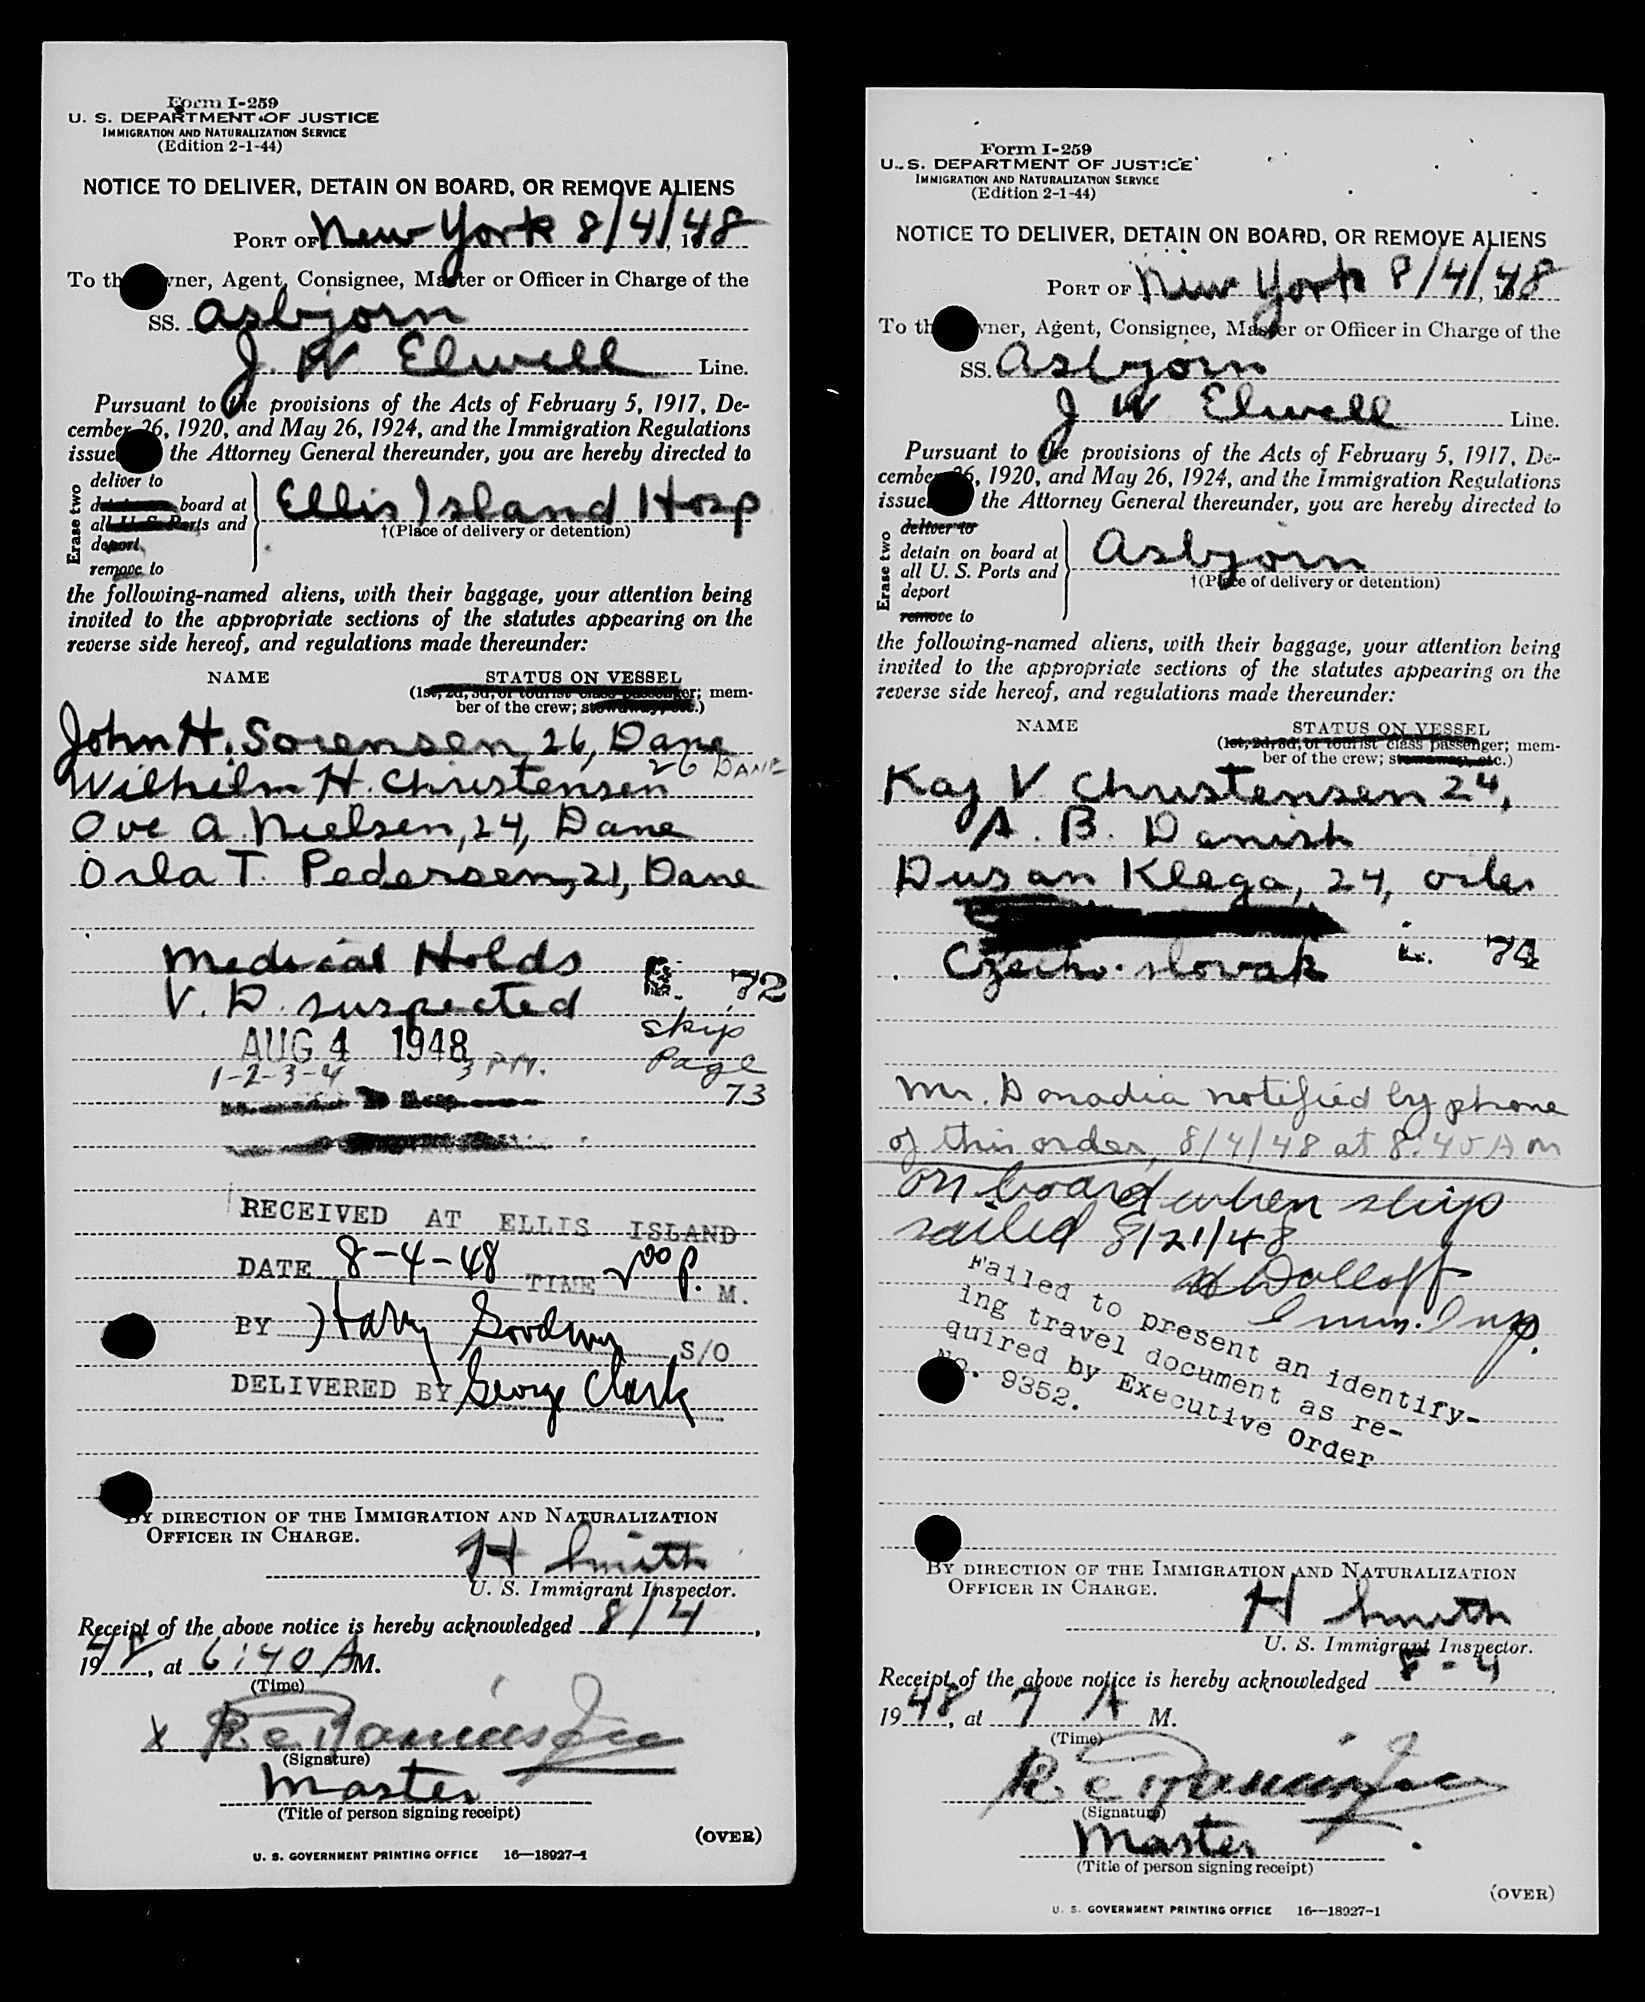 Form I-259
U. S. DEPARTMENT OF JUSTICE
IMMIGRATION AND NATURALIZATION SERVICE
(Edition 2-1-44)
NOTICE TO DELIVER, DETAIN ON BOARD, OR REMOVE ALIENS
PORT OF New York 8/4/, 1948
To the Owner, Agent, Consignee, Master or Officer in Charge of the
SS. Asbjorn
J. W Elwell Line.
Pursuant to the provisions of the Acts of February 5, 1917, De-
cember 26, 1920, and May 26, 1924, and the Immigration Regulations
issued the Attorney General thereunder, you are hereby directed to
Erase two
deliver to
board at
all U. S. Ports and
deport
remove to
Ellis Island Hosp
†(Place of delivery or detention)
the following-named aliens, with their baggage, your attention being
invited to the appropriate sections of the statutes appearing on the
reverse side hereof, and regulations made thereunder:
NAME STATUS ON VESSEL
(1st, 2d, 3d, or tourist class passenger; mem-
ber of the crew; stowaway, etc.)
John H. Sorensen, 26, Dane
Wilhilm H. Christensen 26 DANE
Ove A. Nielsen, 24, Dane
Orla T. Pedersen, 21, Dane
Medical Holds
V. D. suspected 72
AUG 4 1948 skip
1-2-3-4 3 PM. Page
73
RECEIVED AT ELLIS ISLAND
DATE 8-4-48 TIME 00 P. M.
BY Harry Goodwin S/O
DELIVERED BY George Clark
BY DIRECTION OF THE IMMIGRATION AND NATURALIZATION
OFFICER IN CHARGE.
H Smith
U. S. Immigrant Inspector.
Receipt of the above notice is hereby acknowledged 8/4,
1948, at 6:40 A M.
(Time)
X
(Signature)
Master
(Title of person signing receipt)
(OVER)
U. S. GOVERNMENT PRINTING OFFICE 16—18927-1
Form I-259
U. S. DEPARTMENT OF JUSTICE
IMMIGRATION AND NATURALIZATION SERVICE
(Edition 2-1-44)
NOTICE TO DELIVER, DETAIN ON BOARD, OR REMOVE ALIENS
PORT OF New York 8/4/, 1948
To the Owner, Agent, Consignee, Master or Officer in Charge of the
SS. Asbjorn
J W Elwell Line.
Pursuant to the provisions of the Acts of February 5, 1917, De-
cember 26, 1920, and May 26, 1924, and the Immigration Regulations
issued the Attorney General thereunder, you are hereby directed to
Erase two
deliver to
detain on board at
all U. S. Ports and
deport
remove to
Asbjorn
†(Place of delivery or detention)
the following-named aliens, with their baggage, your attention being
invited to the appropriate sections of the statutes appearing on the
reverse side hereof, and regulations made thereunder:
NAME STATUS ON VESSEL
(1st, 2d, 3d, or tourist class passenger; mem-
ber of the crew; stowaway, etc.)
Kaj V Christensen 24,
A. B. Danish
Dusan Klega, 24, oiler
Czecho-slovak 74
Mr. Donadia notified by phone
of this order, 8/4/48 at 8:45 A m
On board when ship
sailed 8/21/48
H Dolloff
Imm. Insp.
Failed to present an identify-
ing travel document as re-
quired by Executive Order
No. 9352.
BY DIRECTION OF THE IMMIGRATION AND NATURALIZATION
OFFICER IN CHARGE.
H Smith
U. S. Immigrant Inspector.
Receipt of the above notice is hereby acknowledged 8-4
1948, at 7 A M.
(Time)
(Signature)
Master
(Title of person signing receipt)
(OVER)
U. S. GOVERNMENT PRINTING OFFICE 16—18927-1